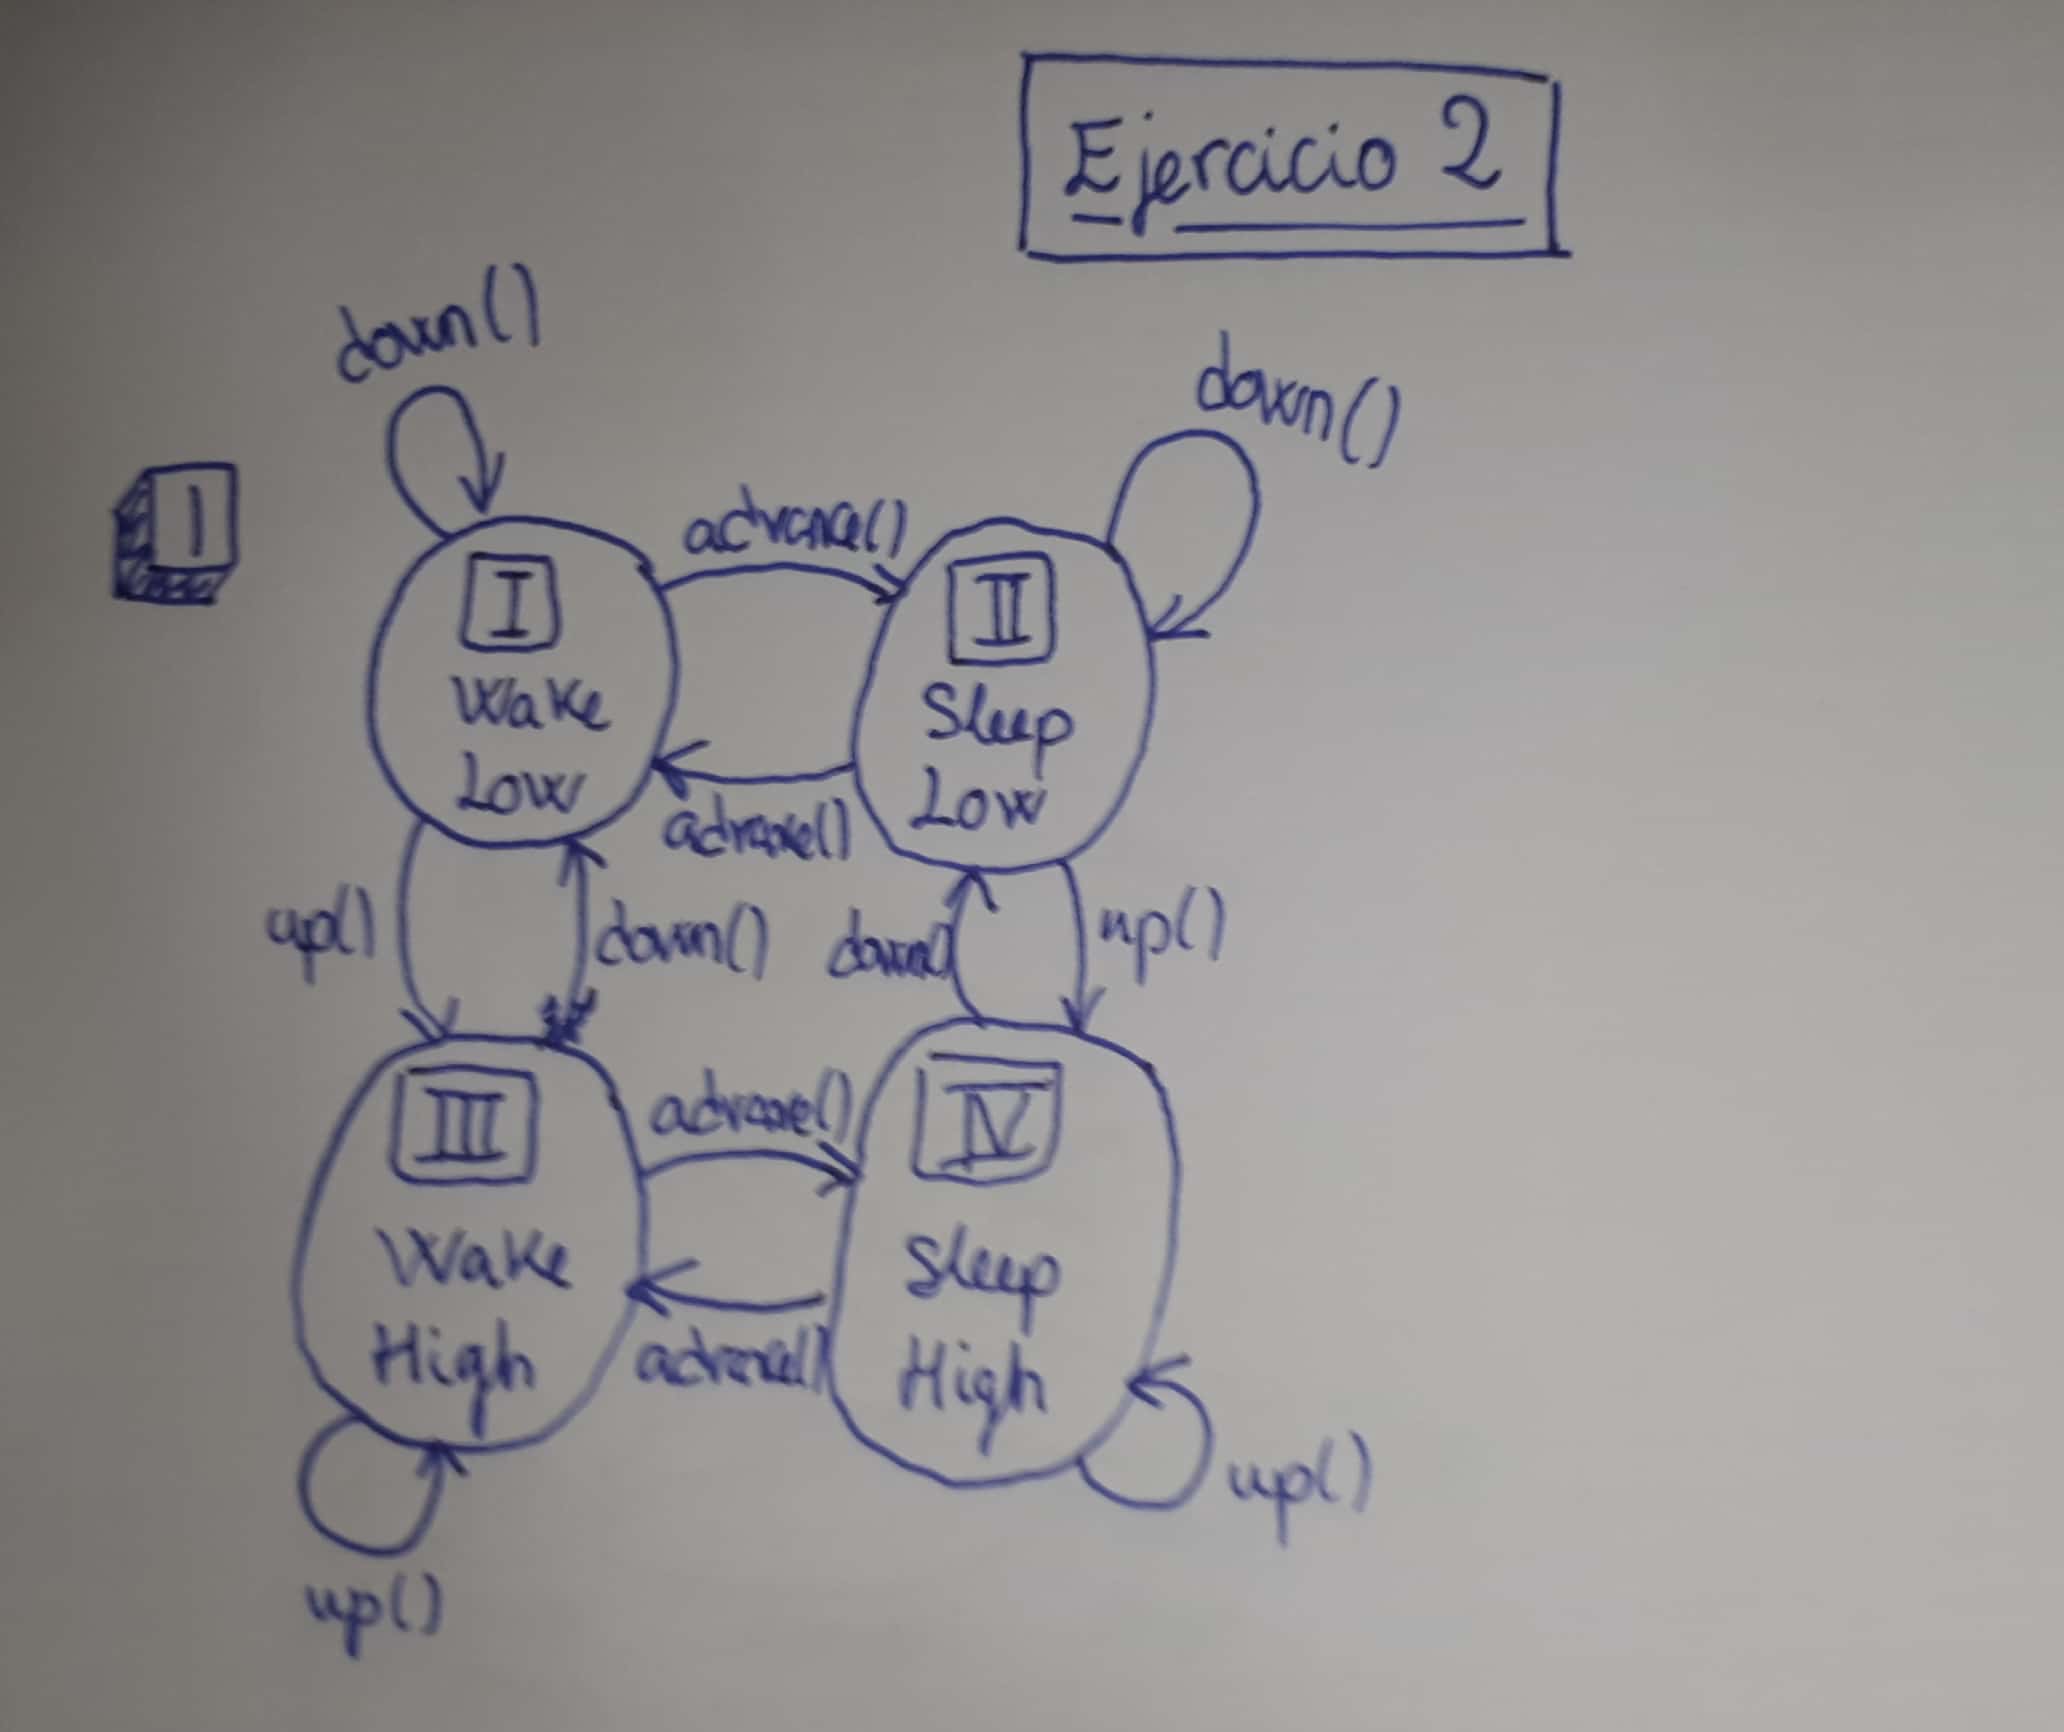 Ejercicio 2
down()
down()
1
advance()
I
Wake
Low
II
Sleep
Low
advance()
up()
down()
down()
up()
III
Wake
High
advance()
IV
Sleep
High
advance()
up()
up()